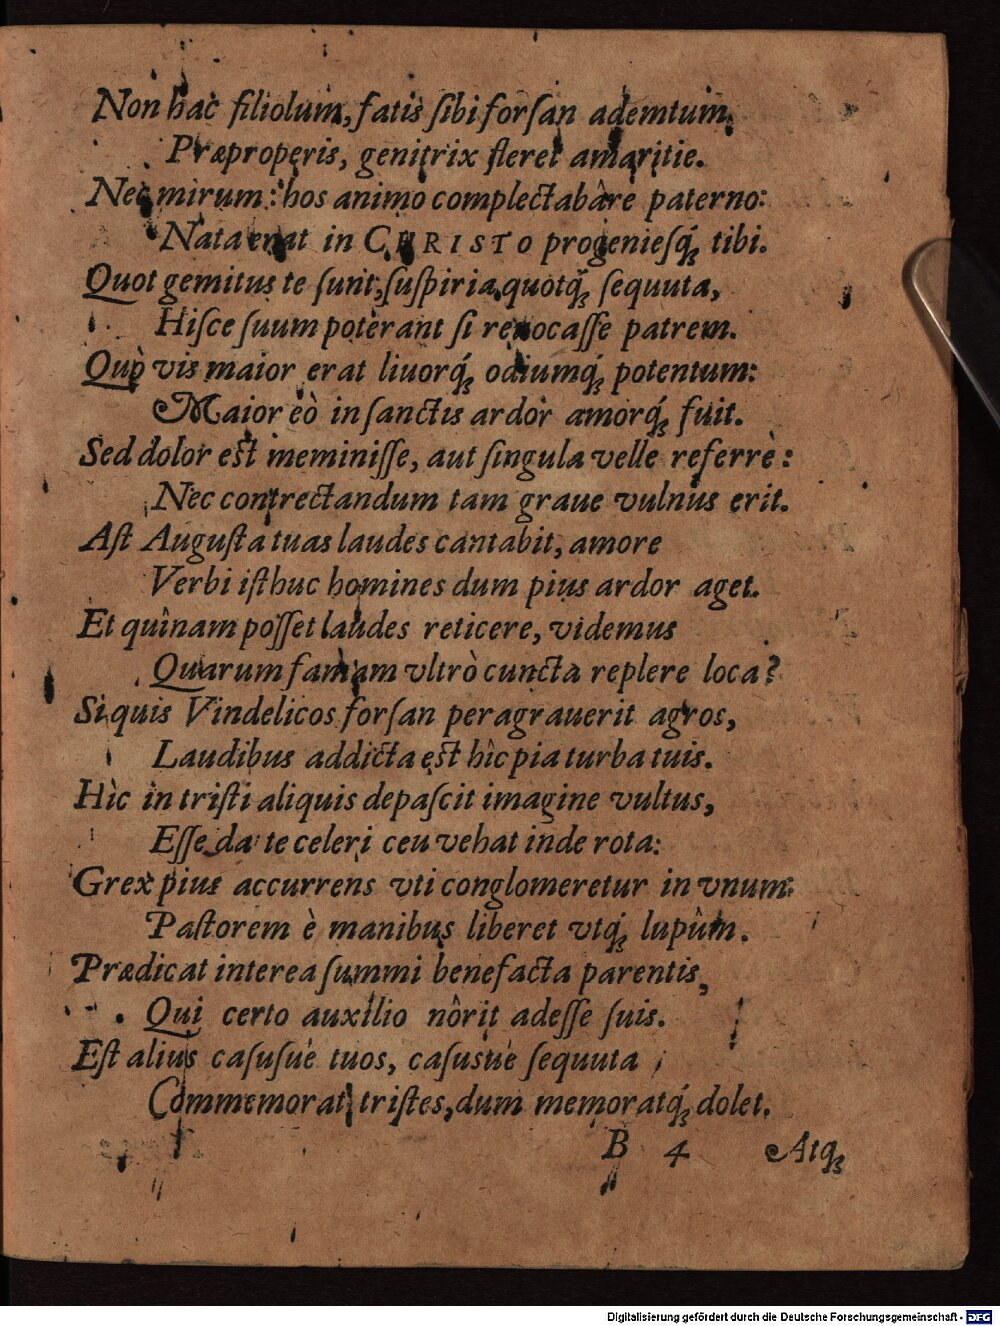 Non hac filiolum, fatis sibi forsan ademtum,
Præproperis, genitrix fleret amaritie.
Nec mirum: hos animo complectabâre paterno:
Nata erat in CHRISTO progeniesq́; tibi.
Quot gemitus te sunt, suspiria, quotq́; sequuta,
Hisce suum poterant si reuocasse patrem.
Quò vis maior erat liuorq́; odiumq́; potentum:
Maior eò in sanctis ardor amorq́; fuit.
Sed dolor est meminisse, aut singula velle referre:
Nec contrectandum tam graue vulnus erit.
Ast Augusta tuas laudes cantabit, amore
Verbi isthuc homines dum pius ardor aget.
Et quînam posset laudes reticere, videmus
Quarum famam vltrò cuncta replere loca?
Si quis Vindelicos forsan peragrauerit agros,
Laudibus addicta est hîc pia turba tuis.
Hîc in tristi aliquis depascit imagine vultus,
Esse da te celeri ceu vehat inde rota:
Grex pius accurrens vti conglomeretur in vnum:
Pastorem è manibus liberet vtq́; lupûm.
Prædicat interea summi benefacta parentis,
Qui certo auxilio nôrit adesse suis.
Est alius casusúe tuos, casusúe sequuta
Commemorat tristes, dum memoratq́; dolet.
B 4 Atq;
Digitalisierung gefördert durch die Deutsche Forschungsgemeinschaft - DFG